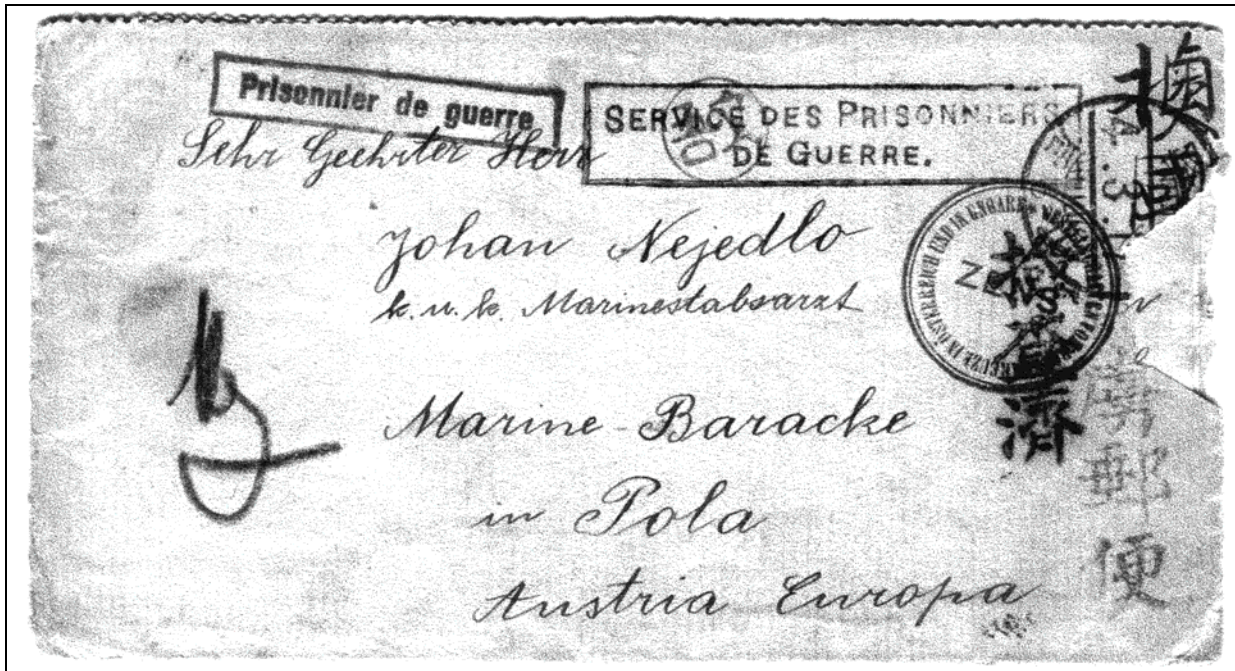 Prisonnier de guerre
SERVICE DES PRISONNIERS
DE GUERRE.
Sehr Geehrter Herr
Johan Nejedlo
k. u. k. Marinestabsarzt
Marine-Baracke
in Pola
Austria Europa
4.3
ÖSTERREICH UND IN UNGARN
濟
郵便